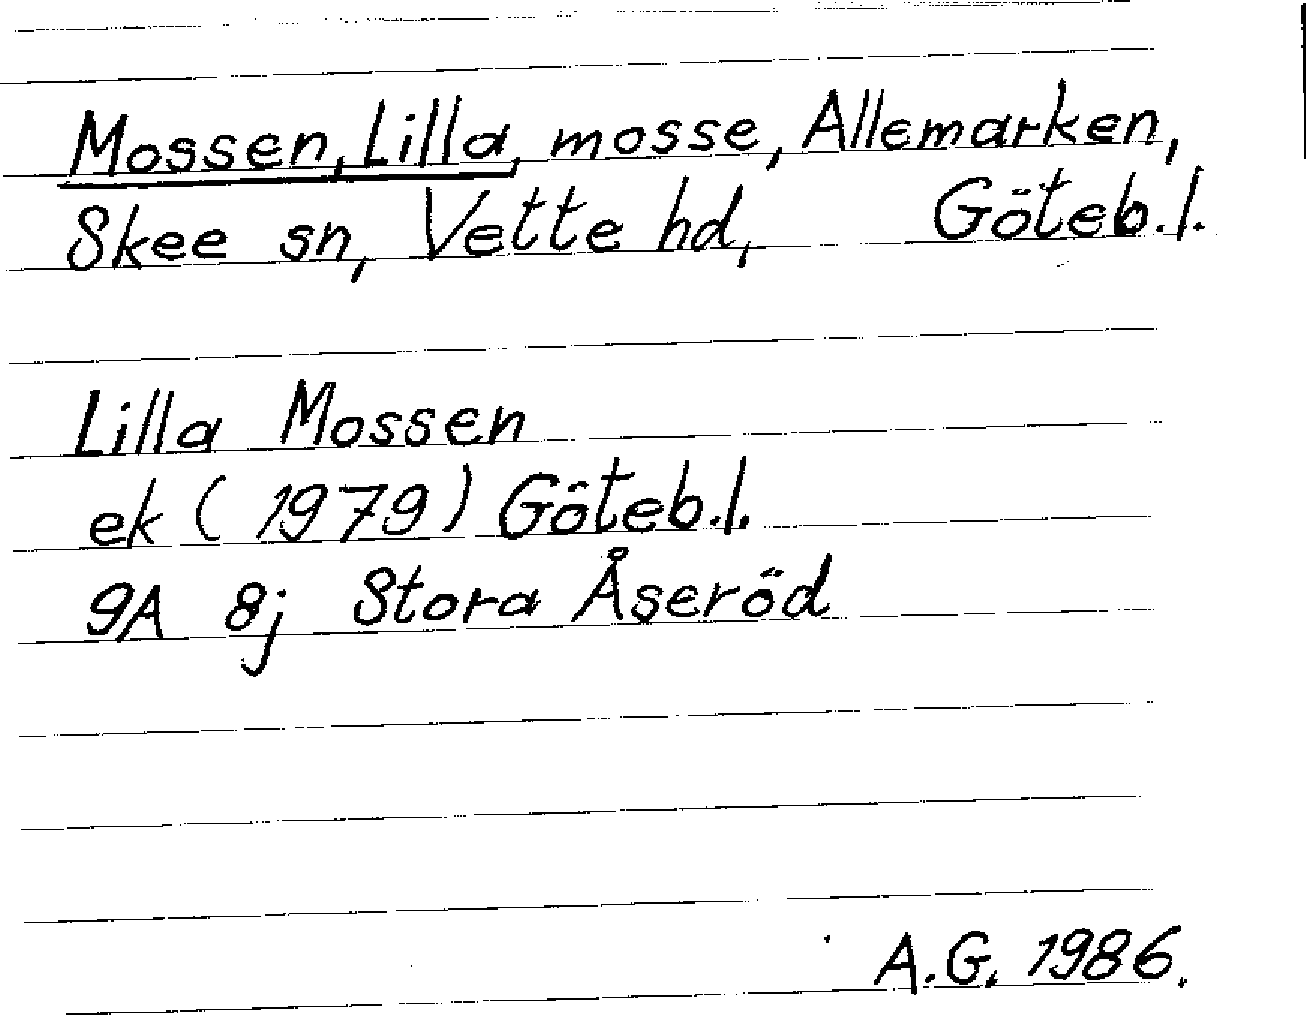 Mossen, Lilla, mosse, Allemarken,
Skee sn, Vette hd, Göteb.l.
Lilla Mossen
ek (1979) Göteb.l.
9A 8j Stora Åseröd
A.G. 1986.